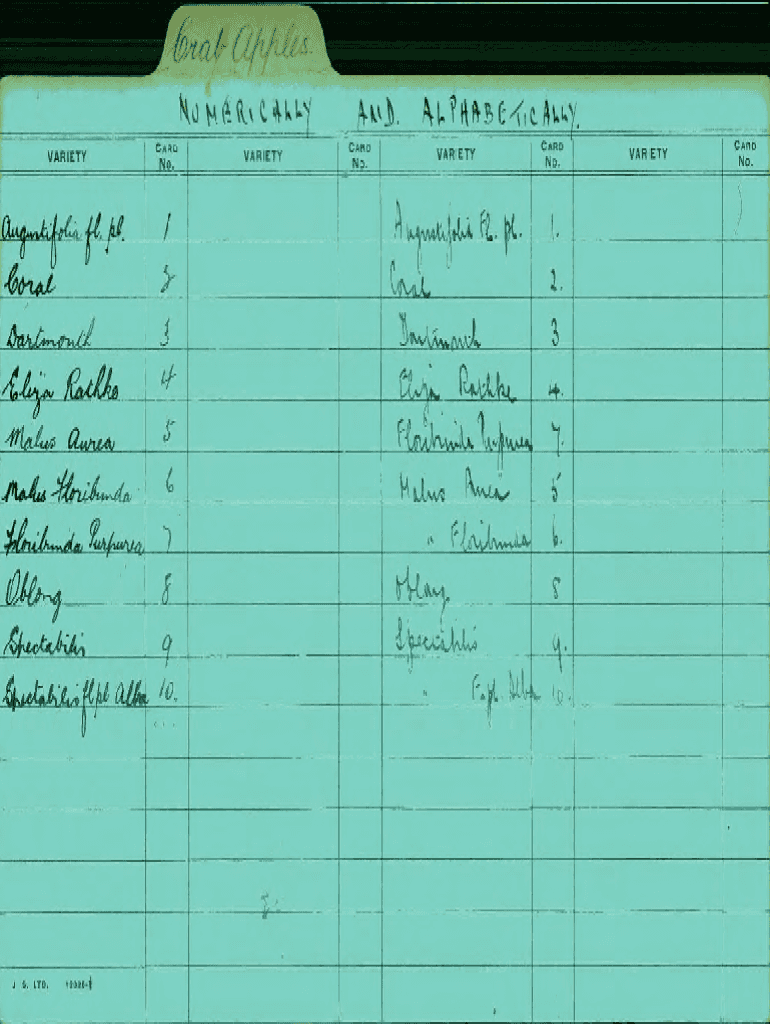 Crab Apples.
NUMERICALLY AND. ALPHABETICALLY.
VARIETY CARD No. VARIETY CARD No. VARIETY CARD No. VARIETY CARD No.
Angustifolia fl. pl. 1 Angustifolia Fl. pl. 1.
Coral 2 Coral 2.
Dartmouth 3 Dartmouth 3
Eliza Rathke 4 Eliza Rathke 4.
Malus Aurea 5 Floribunda Purpurea 7.
Malus Floribunda 6 Malus Aurea 5
Floribunda Purpurea 7 " Floribunda 6.
Oblong 8 Oblong 8
Spectabilis 9 Spectabilis 9.
Spectabilis fl pl Alba 10. " F. pl. Alba 10.
J. S. LTD.